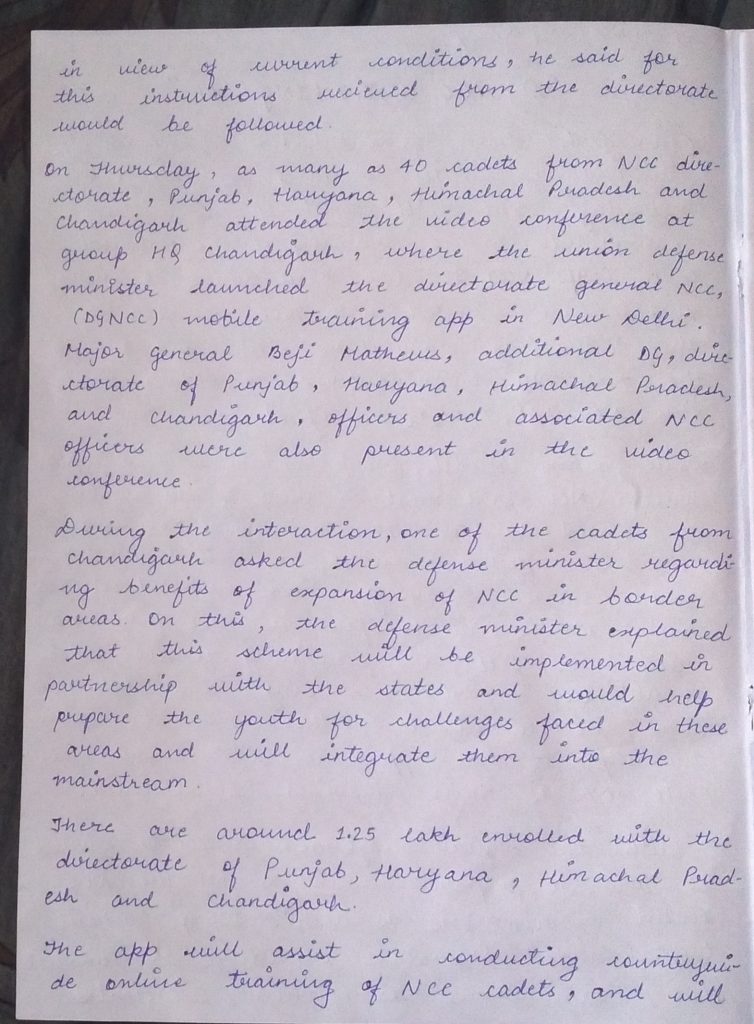 in view of current conditions, he said for
this instructions recieved from the directorate
would be followed.
On Thursday, as many as 40 cadets from NCC dire-
ctorate, Punjab, Haryana, Himachal Pradesh and
Chandigarh attended the video conference at
group HQ Chandigarh, where the union defense
minister launched the directorate general NCC,
(DGNCC) mobile training app in New Delhi.
Major general Beji Mathews, additional DG, dire-
ctorate of Punjab, Haryana, Himachal Pradesh,
and Chandigarh, officers and associated NCC
officers were also present in the video
conference.
During the interaction, one of the cadets from
Chandigarh asked the defense minister regardi-
ng benefits of expansion of NCC in border
areas. On this, the defense minister explained
that this scheme will be implemented in
partnership with the states and would help
prepare the youth for challenges faced in these
areas and will integrate them into the
mainstream.
There are around 1.25 lakh enrolled with the
directorate of Punjab, Haryana, Himachal Prad-
esh and Chandigarh.
The app will assist in conducting countrywi-
de online training of NCC cadets, and will